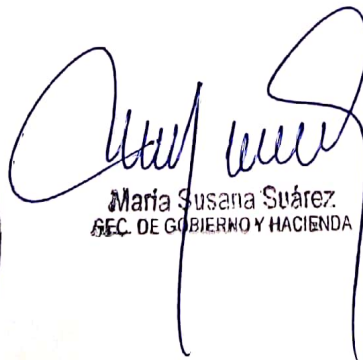 María Susana Suárez
SEC. DE GOBIERNO Y HACIENDA